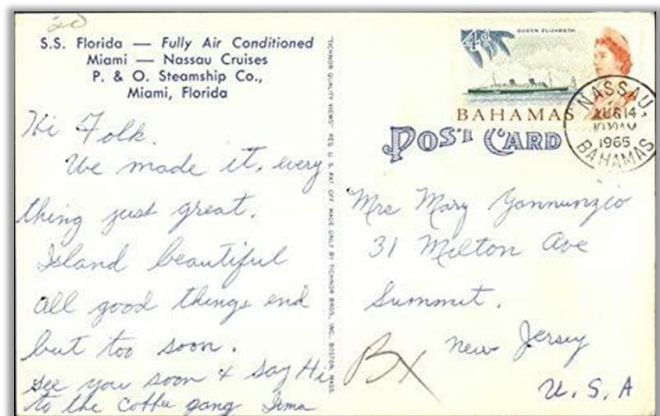 20
S.S. Florida — Fully Air Conditioned
Miami — Nassau Cruises
P. & O. Steamship Co.,
Miami, Florida
Hi Folk.
We made it, every
thing just great.
Island beautiful
all good things end
but too soon.
see you soon & say Hi
to the coffee gang Irma
"TICHNOR QUALITY VIEWS" REG. U. S. PAT. OFF. MADE ONLY BY TICHNOR BROS., INC., BOSTON, MASS.
4d
QUEEN ELIZABETH
BAHAMAS
NASSAU
AUG 14
1965
BAHAMAS
POST CARD
Mrs Mary Yannunzio
31 Milton Ave
Summit.
New Jersey
U.S.A
BX